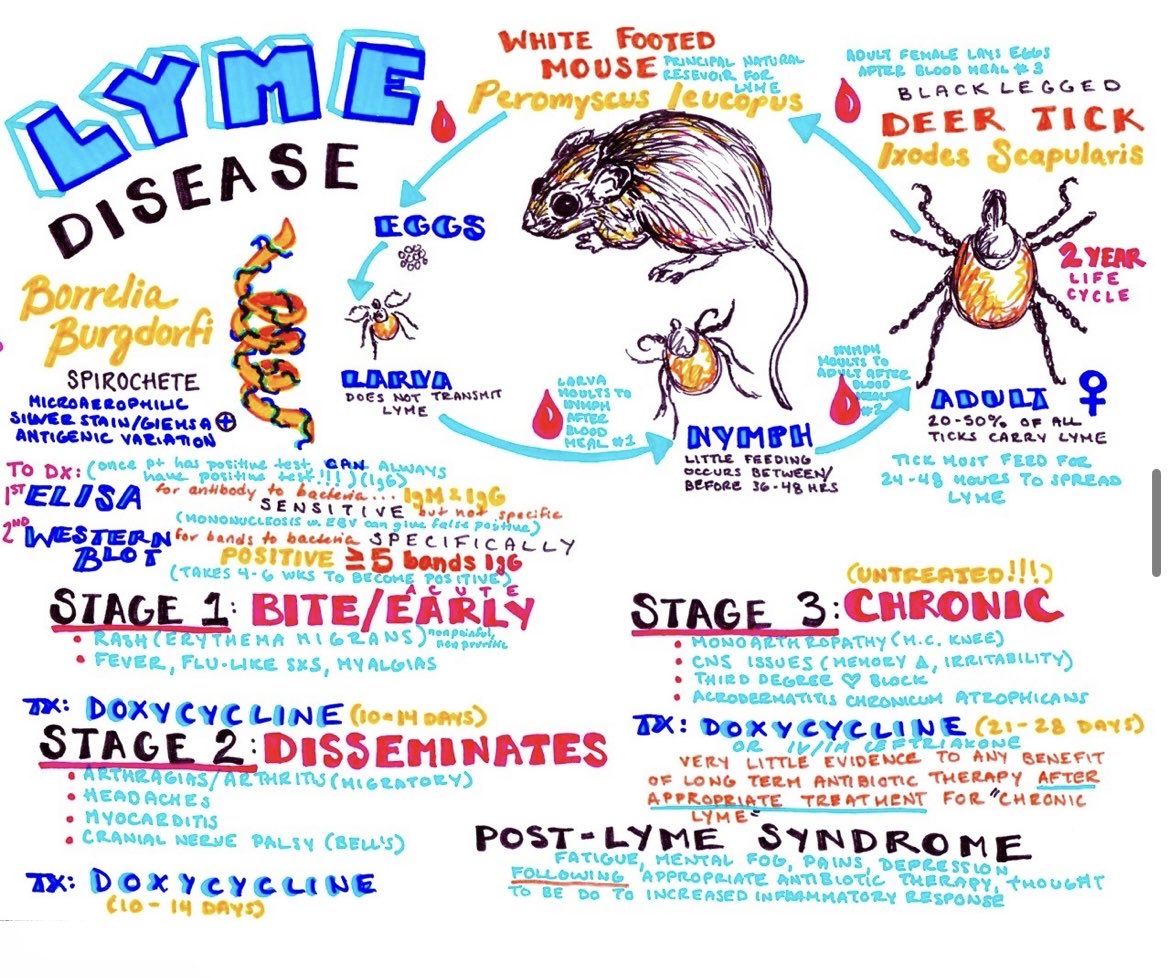 LYME
DISEASE
WHITE FOOTED
MOUSE
PRINCIPAL NATURAL
RESEVOIR FOR
LYME
Peromyscus leucopus
ADULT FEMALE LAYS EGGS
AFTER BLOOD MEAL #3
BLACK LEGGED
DEER TICK
Ixodes Scapularis
2 YEAR
LIFE
CYCLE
EGGS
LARVA
DOES NOT TRANSMIT
LYME
LARVA
MOULTS TO
NYMPH
AFTER
BLOOD
MEAL #1
NYMPH
LITTLE FEEDING
OCCURS BETWEEN/
BEFORE 36-48 HRS
NYMPH
MOULTS TO
ADULT AFTER
BLOOD
MEAL
#2
ADULT ♀
20-50% OF ALL
TICKS CARRY LYME
TICK MUST FEED FOR
24-48 HOURS TO SPREAD
LYME
Borrelia
Burgdorfi
SPIROCHETE
MICROAEROPHILIC
SILVER STAIN/GIEMSA ⊕
ANTIGENIC VARIATION
TO DX: (once pt has positive test CAN ALWAYS
have positive test!!!) (IgG)
1ST ELISA for antibody to bacteria... IgM & IgG
SENSITIVE but not specific
(MONONUCLEOSIS w. EBV can give false positive)
2ND WESTERN BLOT for bands to bacteria SPECIFICALLY
POSITIVE ≥5 bands IgG
(TAKES 4-6 WKS TO BECOME POSITIVE)
STAGE 1: BITE/EARLY
ACUTE
• RASH (ERYTHEMA MIGRANS) nonpainful, non pruritic
• FEVER, FLU-LIKE SXS, MYALGIAS
TX: DOXYCYCLINE (10-14 DAYS)
STAGE 2: DISSEMINATES
• ARTHRAGIAS/ARTHRITIS (MIGRATORY)
• HEADACHES
• MYOCARDITIS
• CRANIAL NERVE PALSY (BELL'S)
TX: DOXYCYCLINE
(10-14 DAYS)
(UNTREATED!!!)
STAGE 3: CHRONIC
• MONOARTHROPATHY (M.C. KNEE)
• CNS ISSUES (MEMORY Δ, IRRITABILITY)
• THIRD DEGREE ♡ BLOCK
• ACRODERMATITIS CHRONICUM ATROPHICANS
TX: DOXYCYCLINE (21-28 DAYS)
OR IV/IM CEFTRIAXONE
VERY LITTLE EVIDENCE TO ANY BENEFIT
OF LONG TERM ANTIBIOTIC THERAPY AFTER
APPROPRIATE TREATMENT FOR "CHRONIC
LYME"
POST-LYME SYNDROME
FATIGUE, MENTAL FOG, PAINS, DEPRESSION
FOLLOWING APPROPRIATE ANTIBIOTIC THERAPY, THOUGHT
TO BE DO TO INCREASED INFLAMMATORY RESPONSE